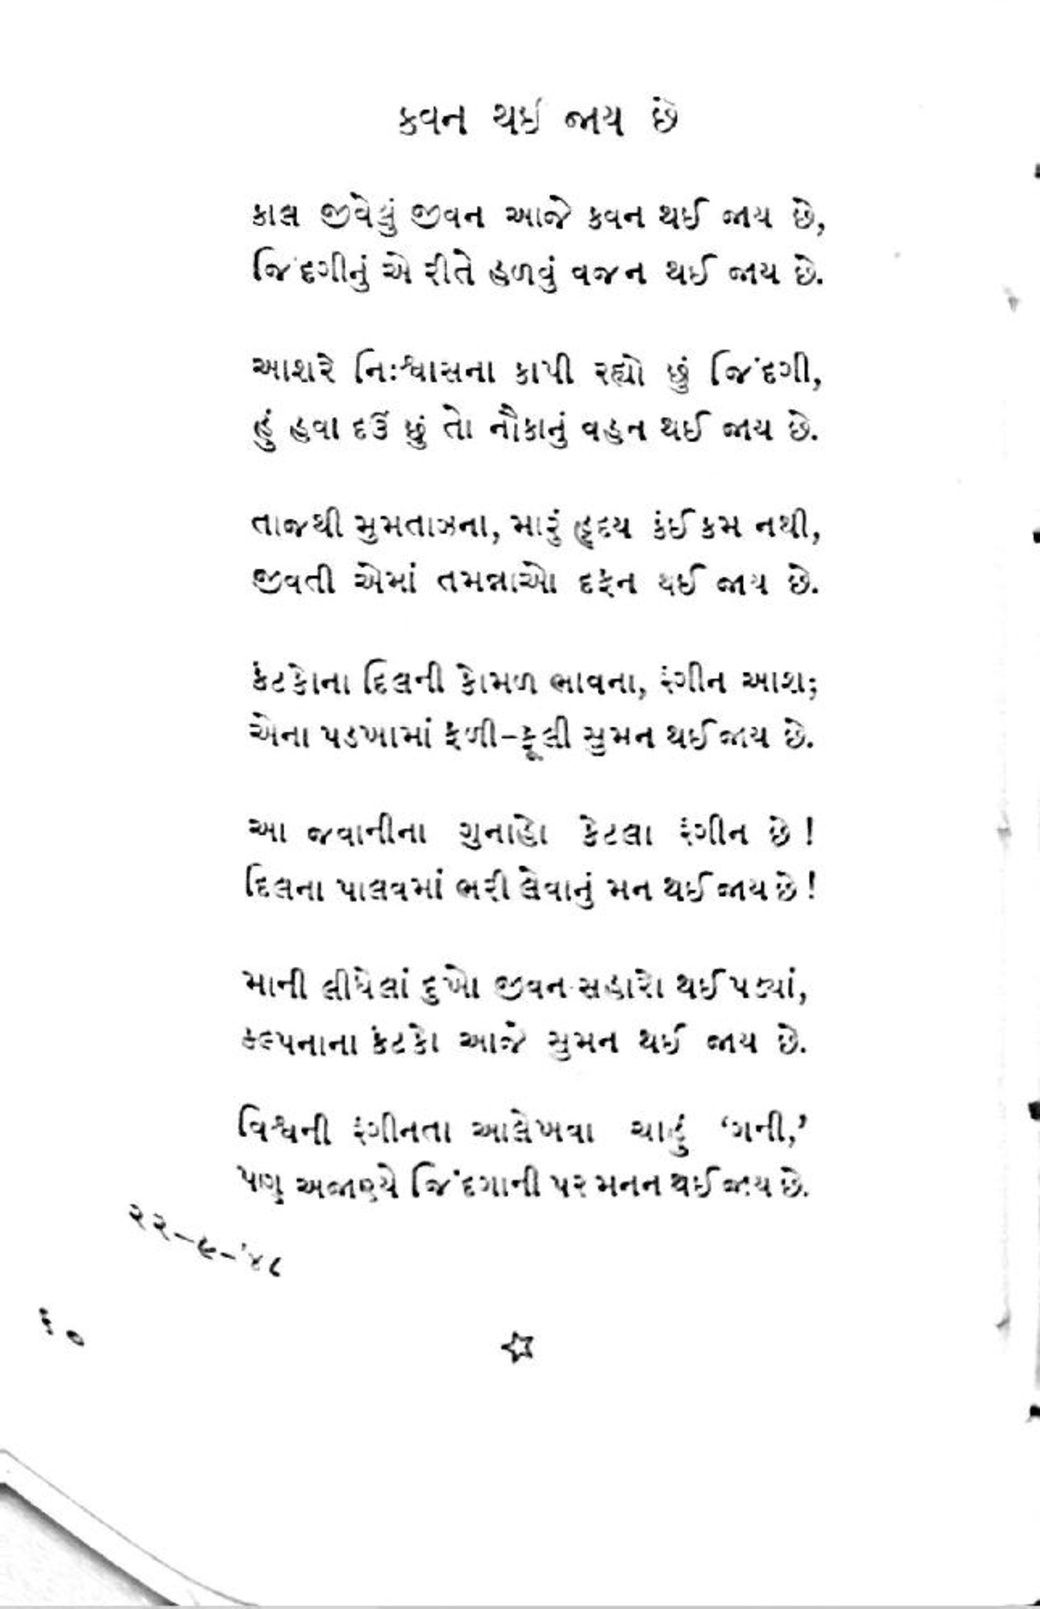 કવન થઈ જાય છે
કાલ જીવેલું જીવન આજે કવન થઈ જાય છે,
જિંદગીનું એ રીતે હળવું વજન થઈ જાય છે.
આશરે નિઃશ્વાસના કાપી રહ્યો છું જિંદગી,
હું હવા દઉં છું તો નૌકાનું વહન થઈ જાય છે.
તાજથી મુમતાઝના, મારું હૃદય કંઈ કમ નથી,
જીવતી એમાં તમન્નાઓ દફન થઈ જાય છે.
કંટકોના દિલની કોમળ ભાવના, રંગીન આશ;
એના પડખામાં ફળી-ફૂલી સુમન થઈ જાય છે.
આ જવાનીના ગુનાહો કેટલા રંગીન છે !
દિલના પાલવમાં ભરી લેવાનું મન થઈ જાય છે !
માની લીધેલાં દુખો જીવન-સહારો થઈ પડ્યાં,
કલ્પનાના કંટકો આજે સુમન થઈ જાય છે.
વિશ્વની રંગીનતા આલેખવા ચાહું ‘ગની,’
પણ અજાણ્યે જિંદગાની પર મનન થઈ જાય છે.
૨૨-૯-’૪૮
૬૦